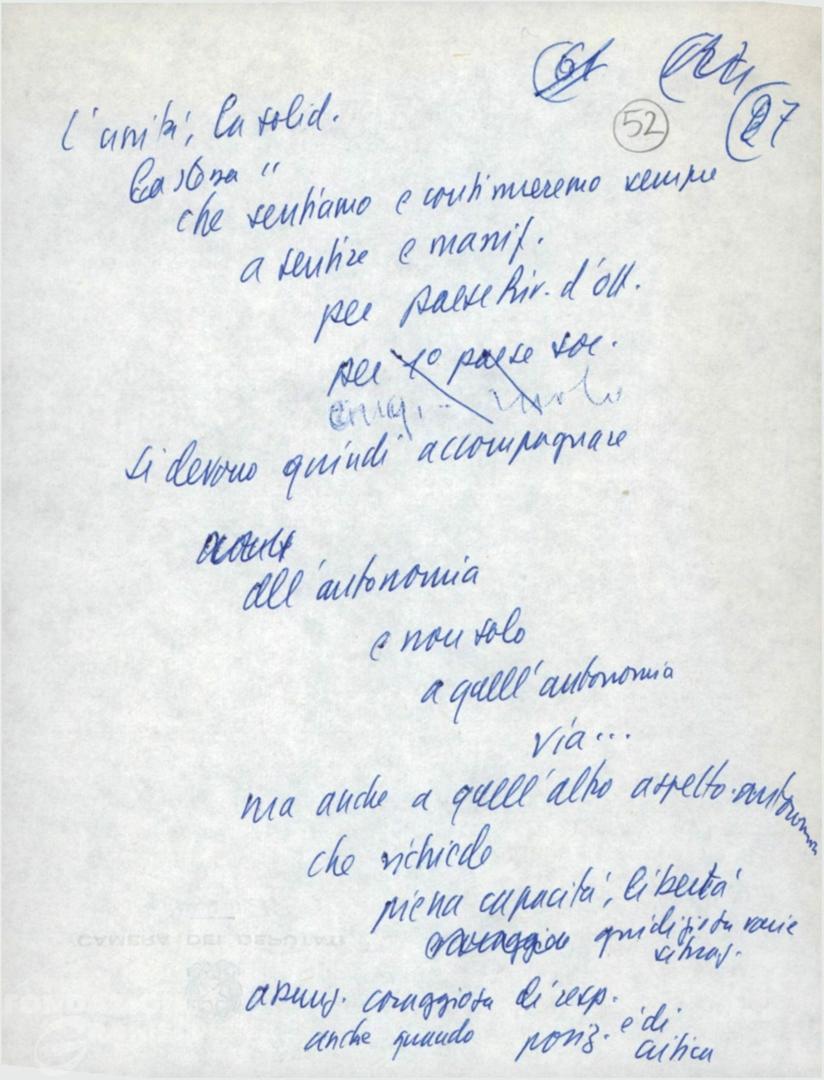 52
27
L'unità, la solid.
che sentiamo e continueremo sempre
a sentire e manif.
per paese Riv. d'Ott.
per 1° paese soc.
si devono quindi accompagnare
all'autonomia
e non solo
a quell'autonomia
via...
ma anche a quell'altro aspetto autonomia
che richiede
piena capacità, libertà
coraggio giudizi su varie
situaz.
assunz. coraggiosa di resp.
anche quando posiz. è di
critica
CAMERA DEI DEPUTATI